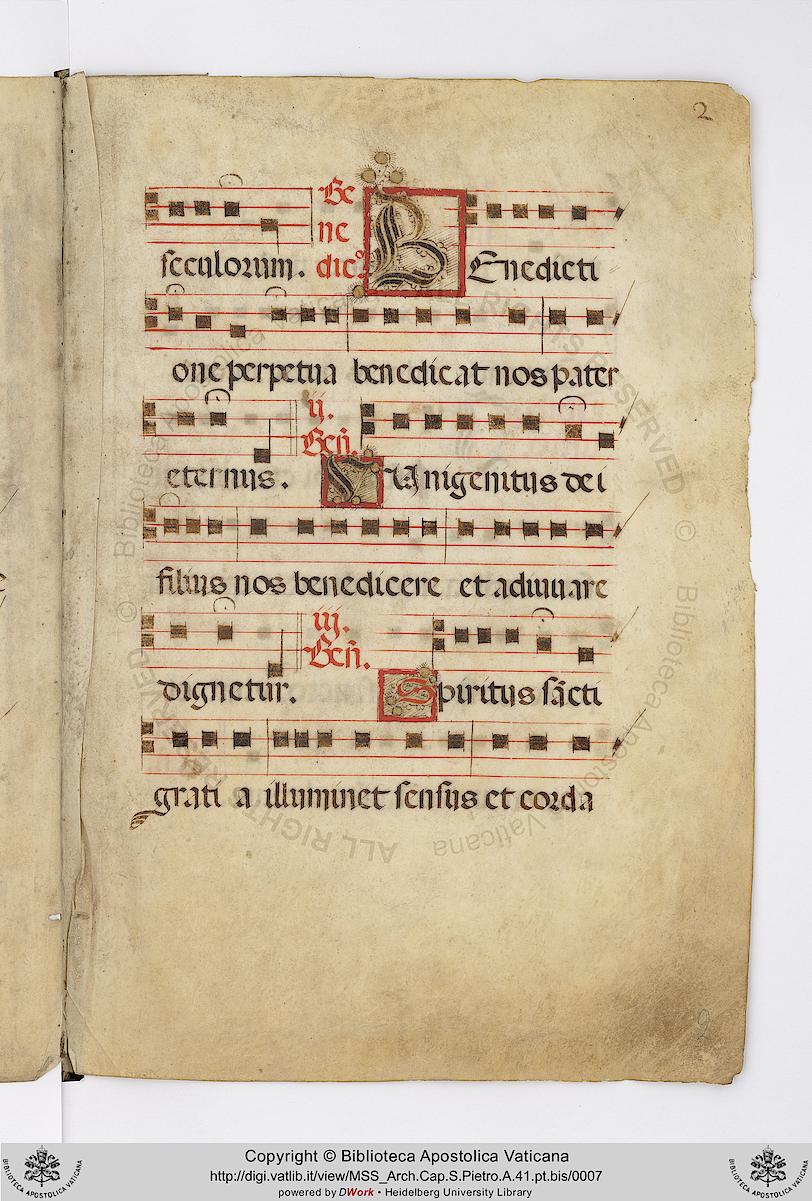 2
seculorum. Be
ne
dic⁹. BEnedicti
one perpetua benedicat nos pater
eternus. ij.
Ben̄. VUnigenitus dei
filius nos benedicere et adiuuare
dignetur. iij.
Ben̄. Spiritus sc̄i
grati a illuminet sensus et corda
Copyright © Biblioteca Apostolica Vaticana
http://digi.vatlib.it/view/MSS_Arch.Cap.S.Pietro.A.41.pt.bis/0007
powered by DWork • Heidelberg University Library
BIBLIOTECA APOSTOLICA VATICANA
BIBLIOTECA APOSTOLICA VATICANA
© Biblioteca Apostolica Vaticana
ALL RIGHTS RESERVED